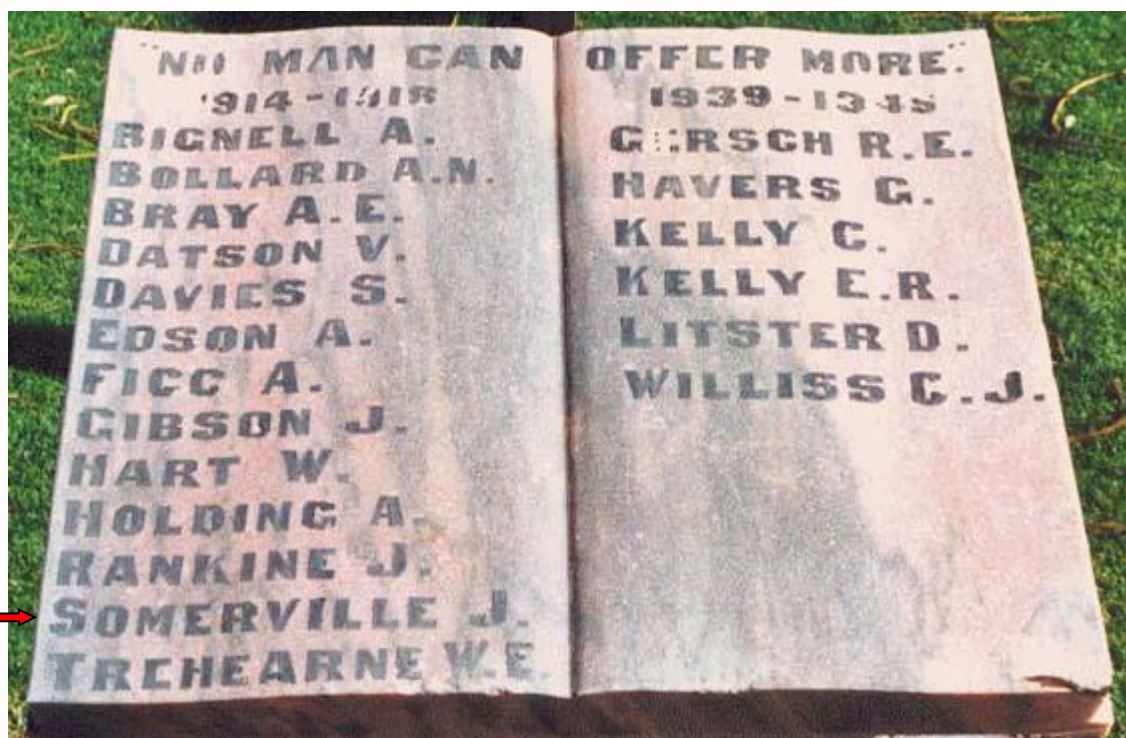 "NO MAN CAN OFFER MORE."
1914-1918
BIGNELL A.
BOLLARD A.N.
BRAY A.E.
DATSON V.
DAVIES S.
EDSON A.
FIGG A.
GIBSON J.
HART W.
HOLDING A.
RANKINE J.
SOMERVILLE J.
TREHEARNE W.E.
1939-1945
R.E.
HAVERS G.
KELLY C.
KELLY E.R.
LITSTER D.
WILLISS G.J.